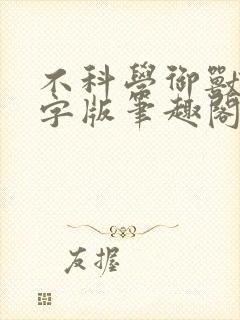 不科學御獸
字版筆趣閣
友握